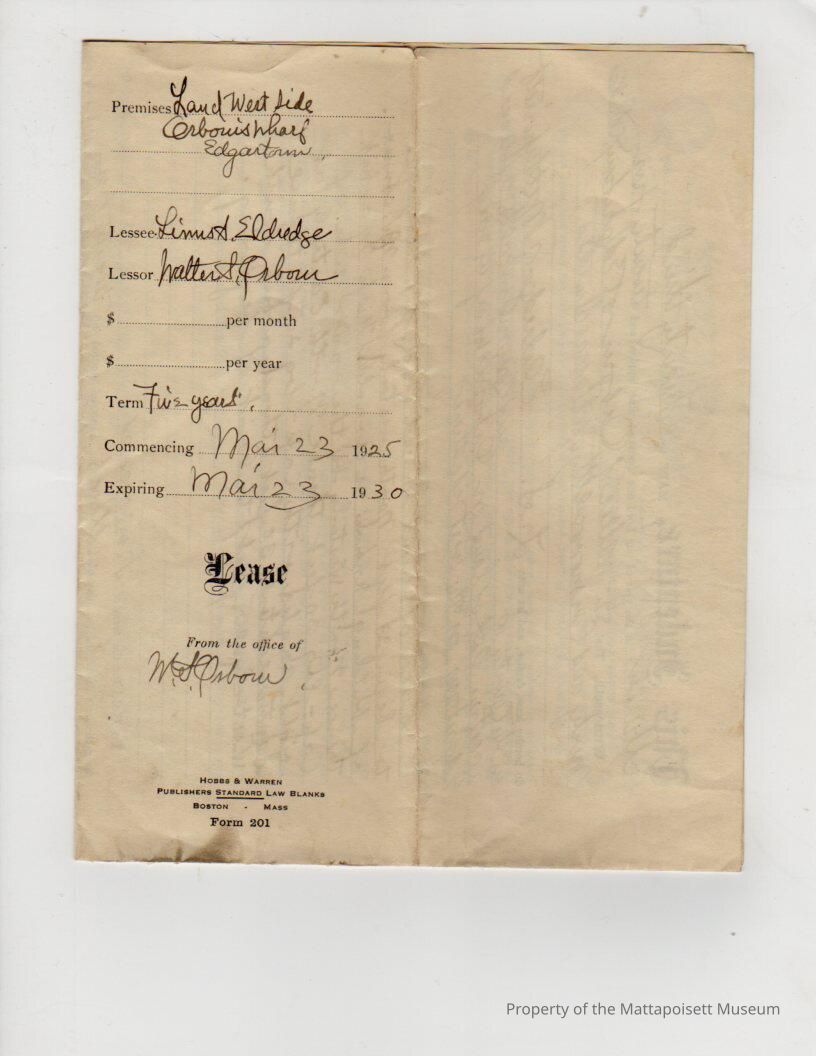 Premises Land West Side
Osborn's Wharf
Edgartown,
Lessee Linus S. Eldredge
Lessor Walter S. Osborn
$ per month
$ per year
Term Five years.
Commencing Mar 23 1925
Expiring Mar 23 1930
Lease
From the office of
W. S. Osborn
HOBBS & WARREN
PUBLISHERS STANDARD LAW BLANKS
BOSTON - MASS
Form 201
Property of the Mattapoisett Museum